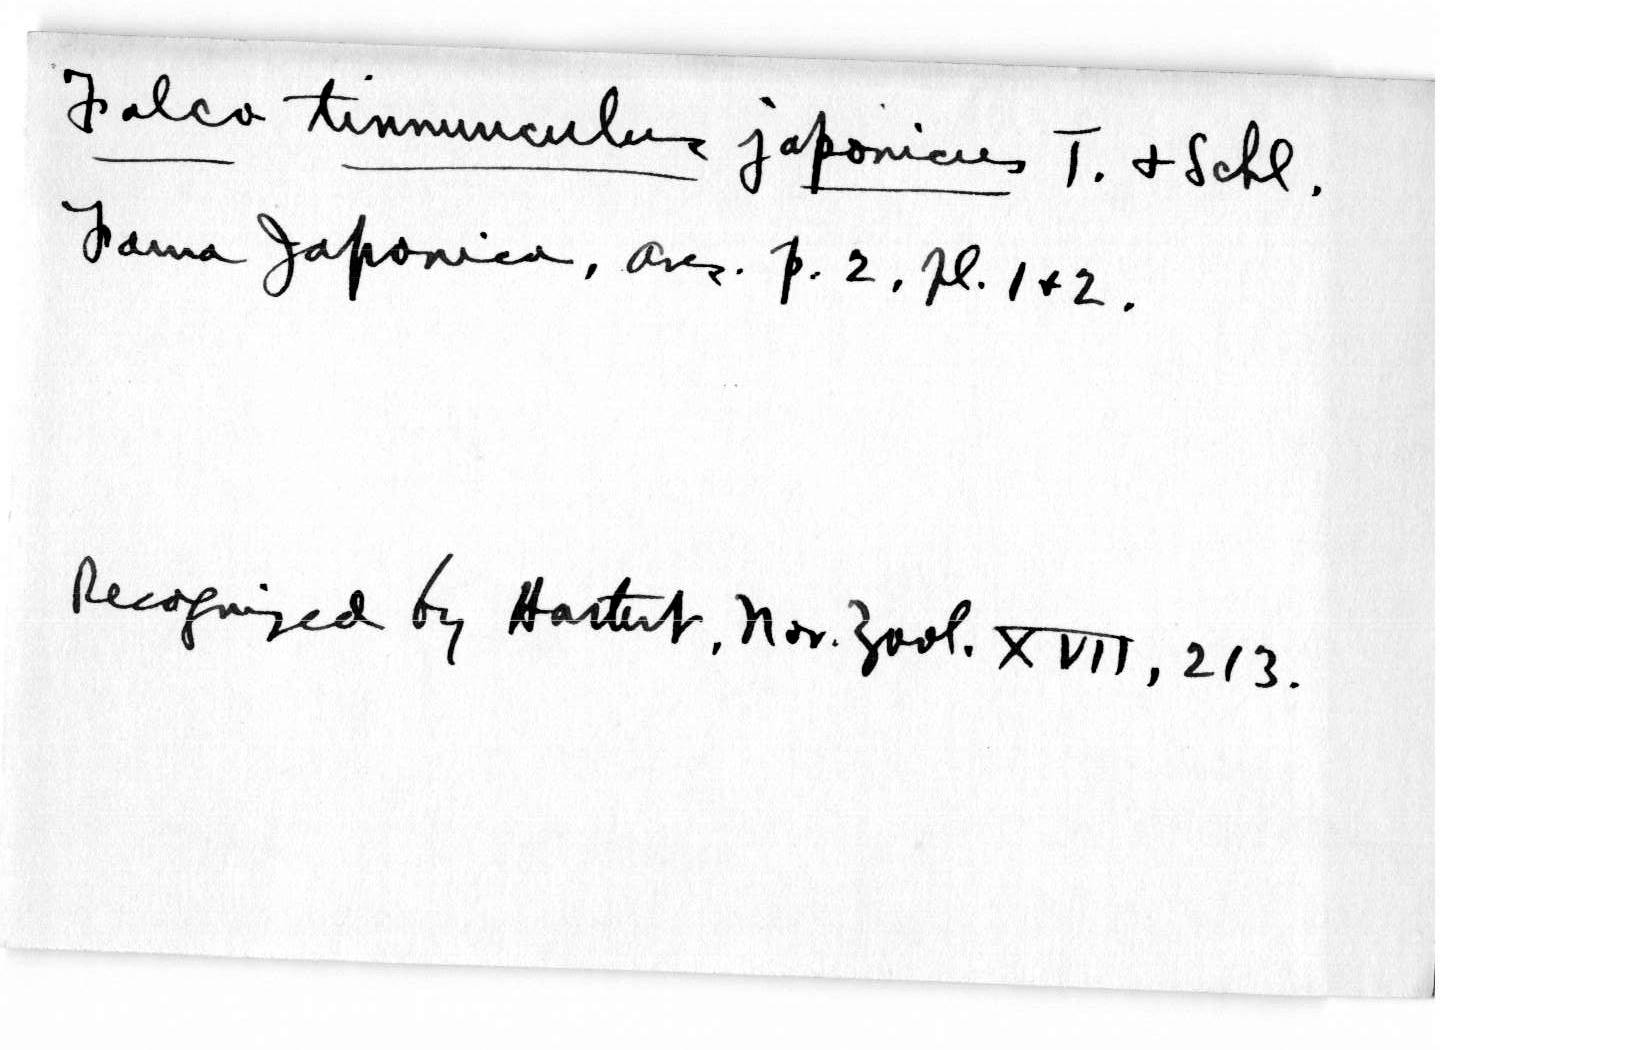 Falco tinnunculus japonicus T. + Schl.
Fauna Japonica, Aves. p. 2, pl. 1 + 2.
Recognized by Hartert, Nov. Zool. XVII, 213.